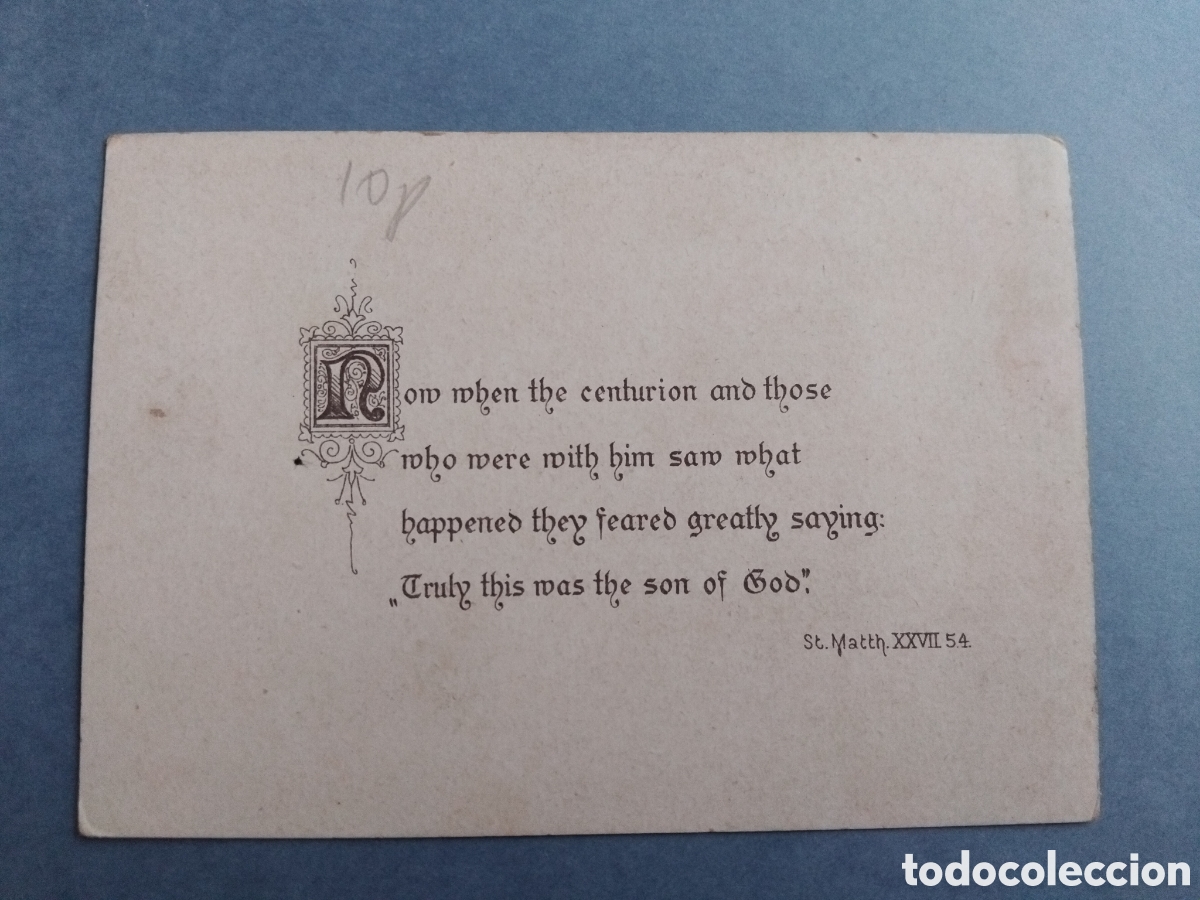 10p
Now when the centurion and those
who were with him saw what
happened they feared greatly saying:
„Truly this was the son of God”.
St. Matth. XXVII 54.
todocoleccion